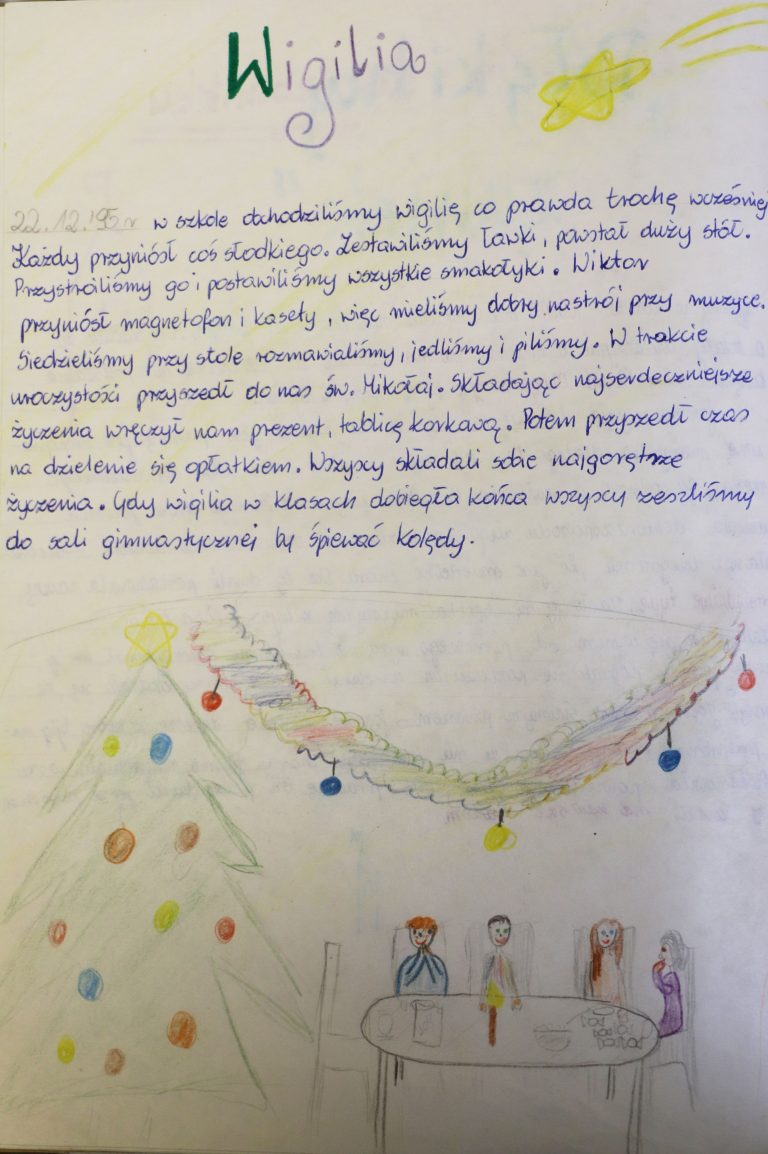 Wigilia
22.12.'95r w szkole obchodziliśmy wigilię co prawda trochę wcześniej
Każdy przyniósł coś słodkiego. Zestawiliśmy ławki, powstał duży stół.
Przystroiliśmy go i postawiliśmy wszystkie smakołyki. Wiktor
przyniósł magnetofon i kasety, więc mieliśmy dobry nastrój przy muzyce.
Siedzieliśmy przy stole rozmawialiśmy, jedliśmy i piliśmy. W trakcie
uroczystości przyszedł do nas św. Mikołaj. Składając najserdeczniejsze
życzenia wręczył nam prezent, tablicę korkową. Potem przyszedł czas
na dzielenie się opłatkiem. Wszyscy składali sobie najgorętrze
życzenia. Gdy wigilia w klasach dobiegła końca wszyscy zeszliśmy
do sali gimnastycznej by śpiewać kolędy.